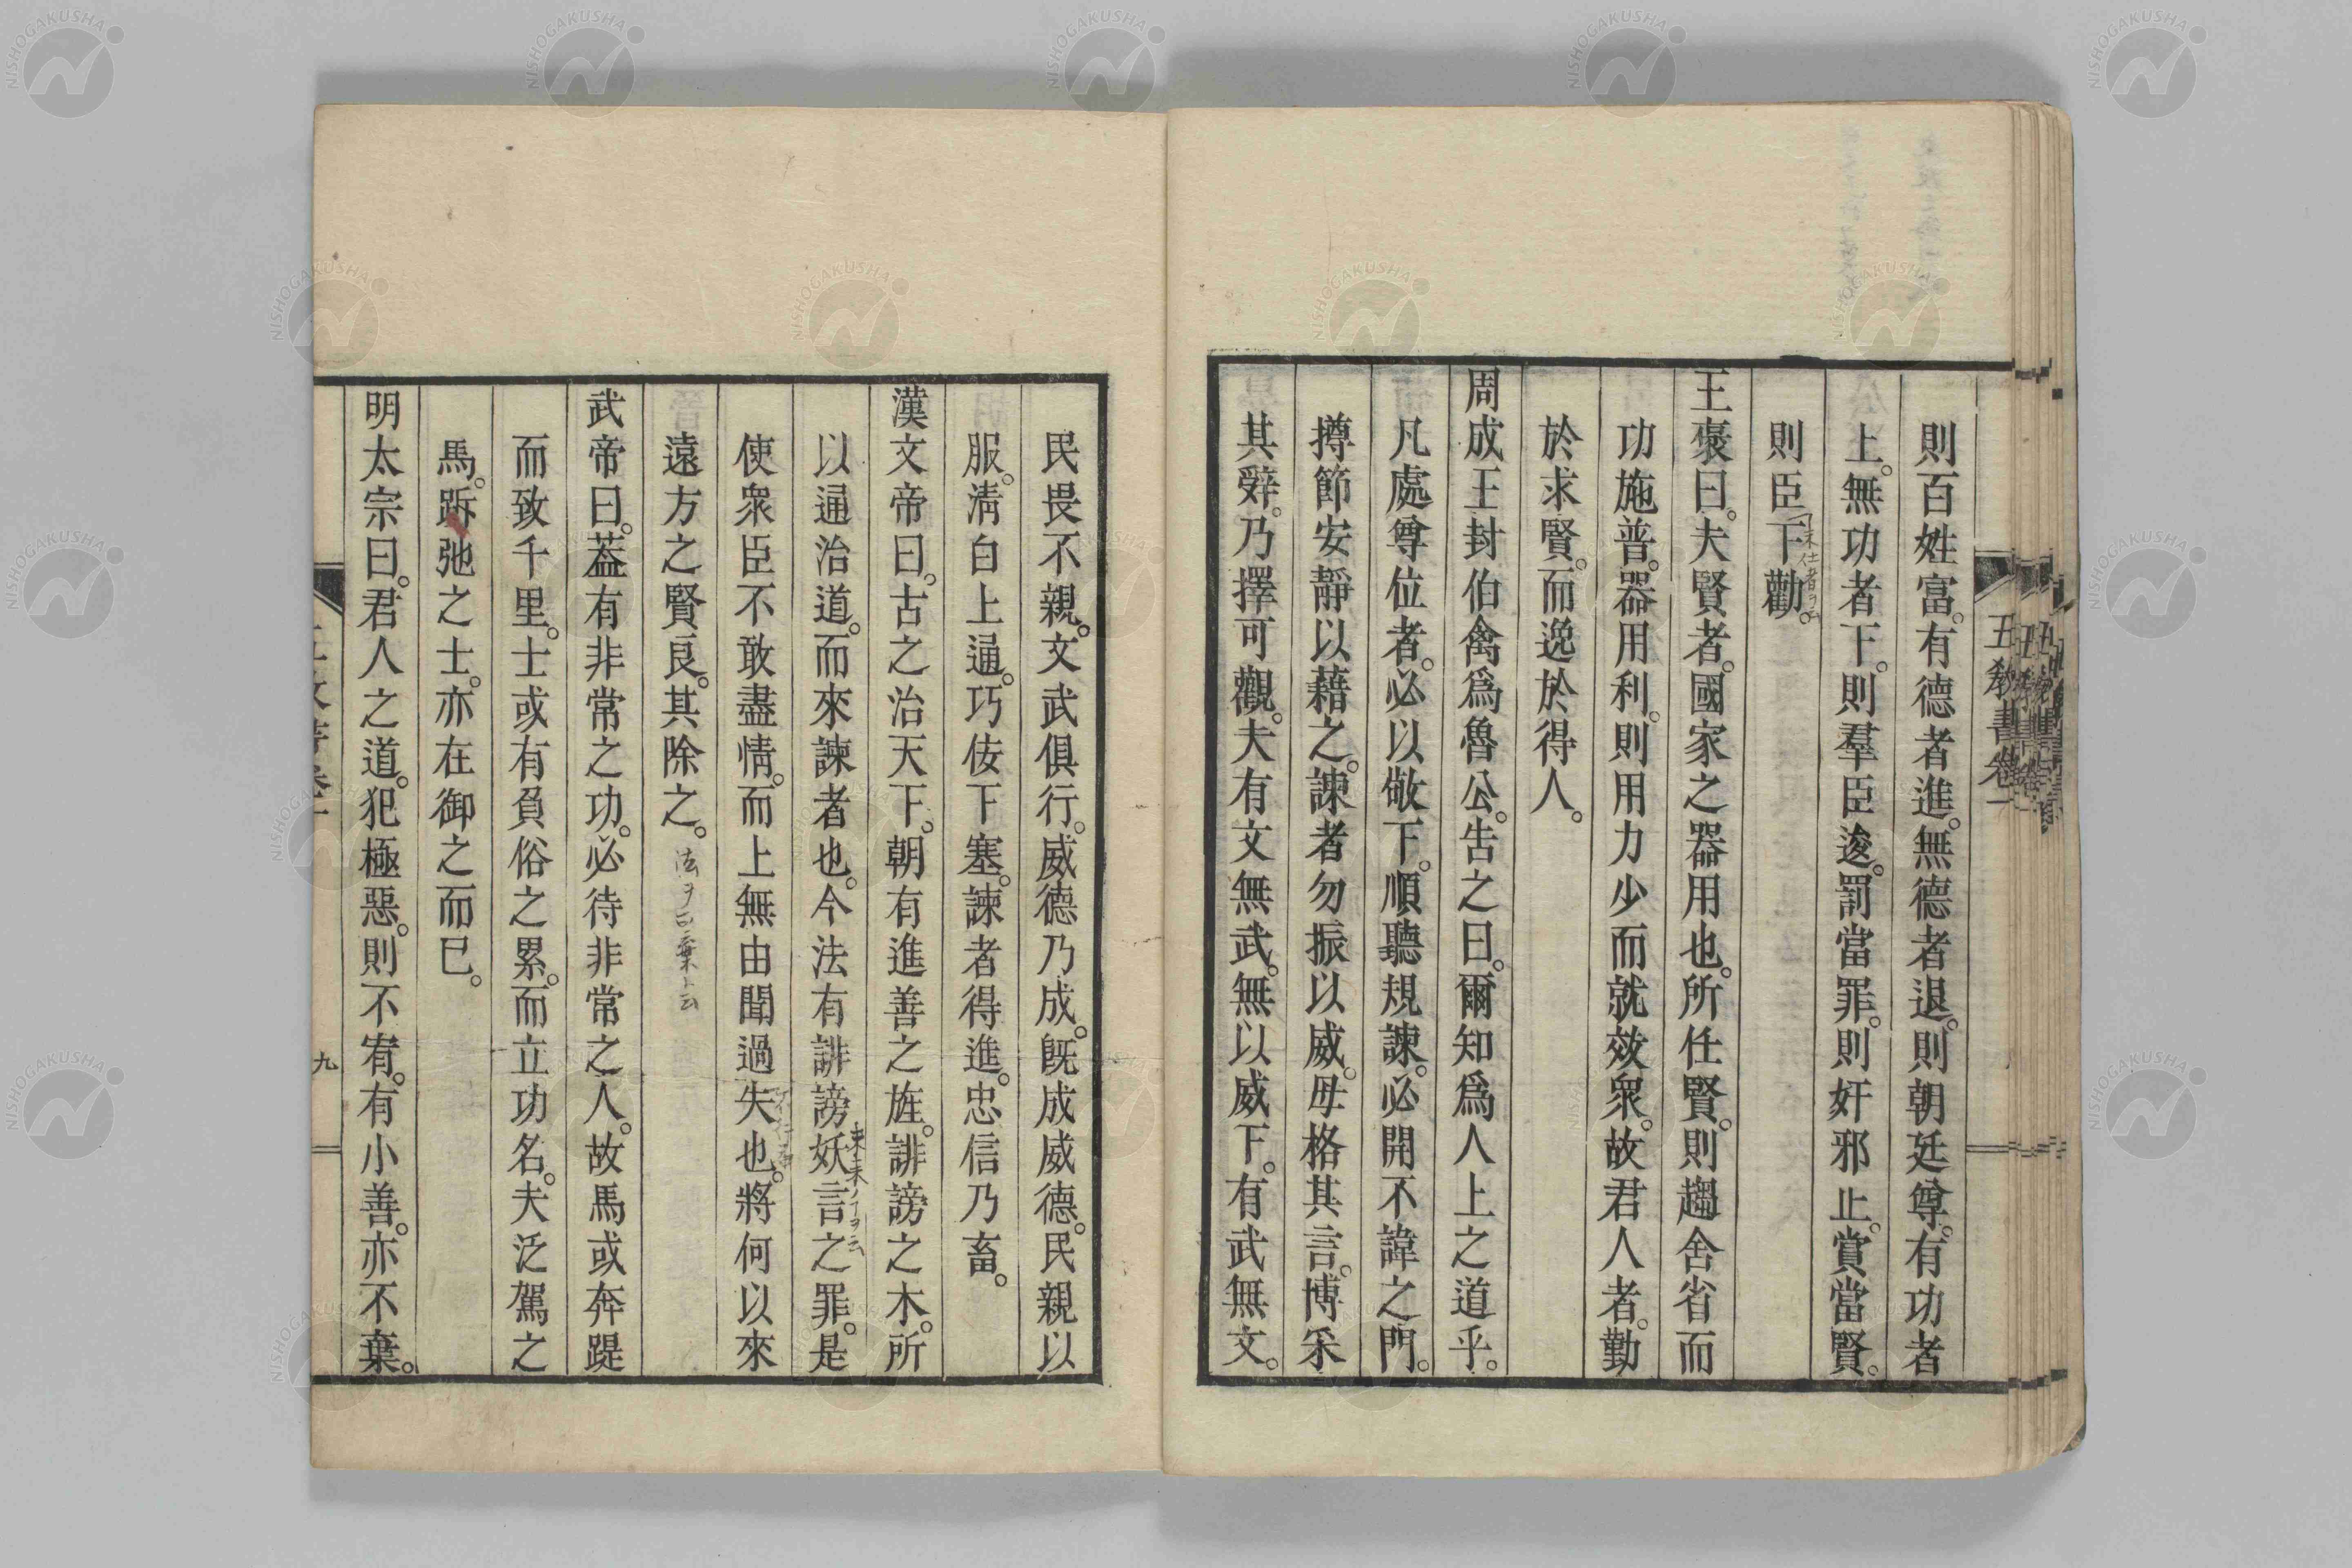 五教書卷一
則百姓富。有德者進。無德者退。則朝廷尊。有功者
上。無功者下。則羣臣逡。罰當罪。則奸邪止。賞當賢。
則臣下勸。
王襃曰。夫賢者。國家之器用也。所任賢。則趨舍省而
功施普。器用利。則用力少而就效衆。故君人者。勤
於求賢。而逸於得人。
周成王封伯禽爲魯公。告之曰。爾知爲人上之道乎。
凡處尊位者。必以敬下。順聽規諫。必開不諱之門。
撙節安靜以藉之。諫者勿振以威。毋格其言。博采
其辭。乃擇可觀。夫有文無武。無以威下。有武無文。
民畏不親。文武俱行。威德乃成。旣成威德。民親以
服。淸白上通。巧佞下塞。諫者得進。忠信乃畜。
漢文帝曰。古之治天下。朝有進善之旌。誹謗之木。所
以通治道。而來諫者也。今法有誹謗妖言之罪。是
使衆臣不敢盡情。而上無由聞過失也。將何以來
遠方之賢良。其除之。
武帝曰。蓋有非常之功。必待非常之人。故馬或奔踶
而致千里。士或有負俗之累。而立功名。夫泛駕之
馬。跅弛之士。亦在御之而已。
明太宗曰。君人之道。犯極惡。則不宥。有小善。亦不棄。
九
NISHOGAKUSHA